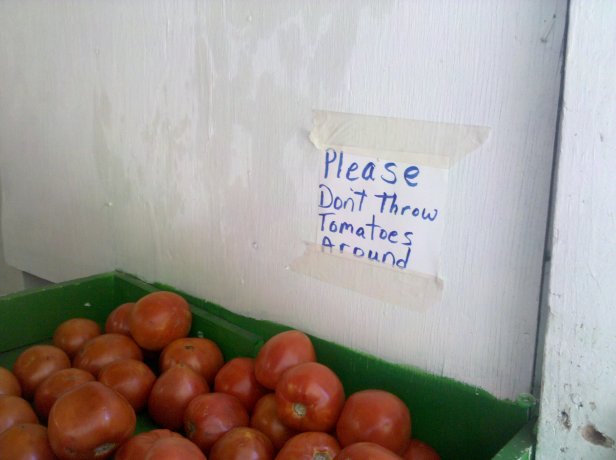 Please
Don't Throw
Tomatoes
Around